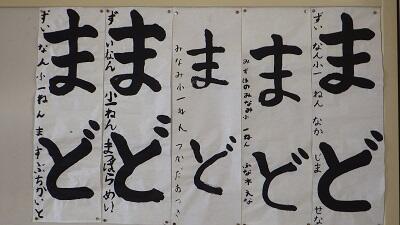 まど
ずいなん小一ねん なかじま せな
まど
みずほのみなみ小 一ねん ふな木 えな
まど
みなみ小一ねん つかだあつき
まど
ずいなん 小一ねん まつばらめい
まど
ずいなん小一ねん ますぶちかいと